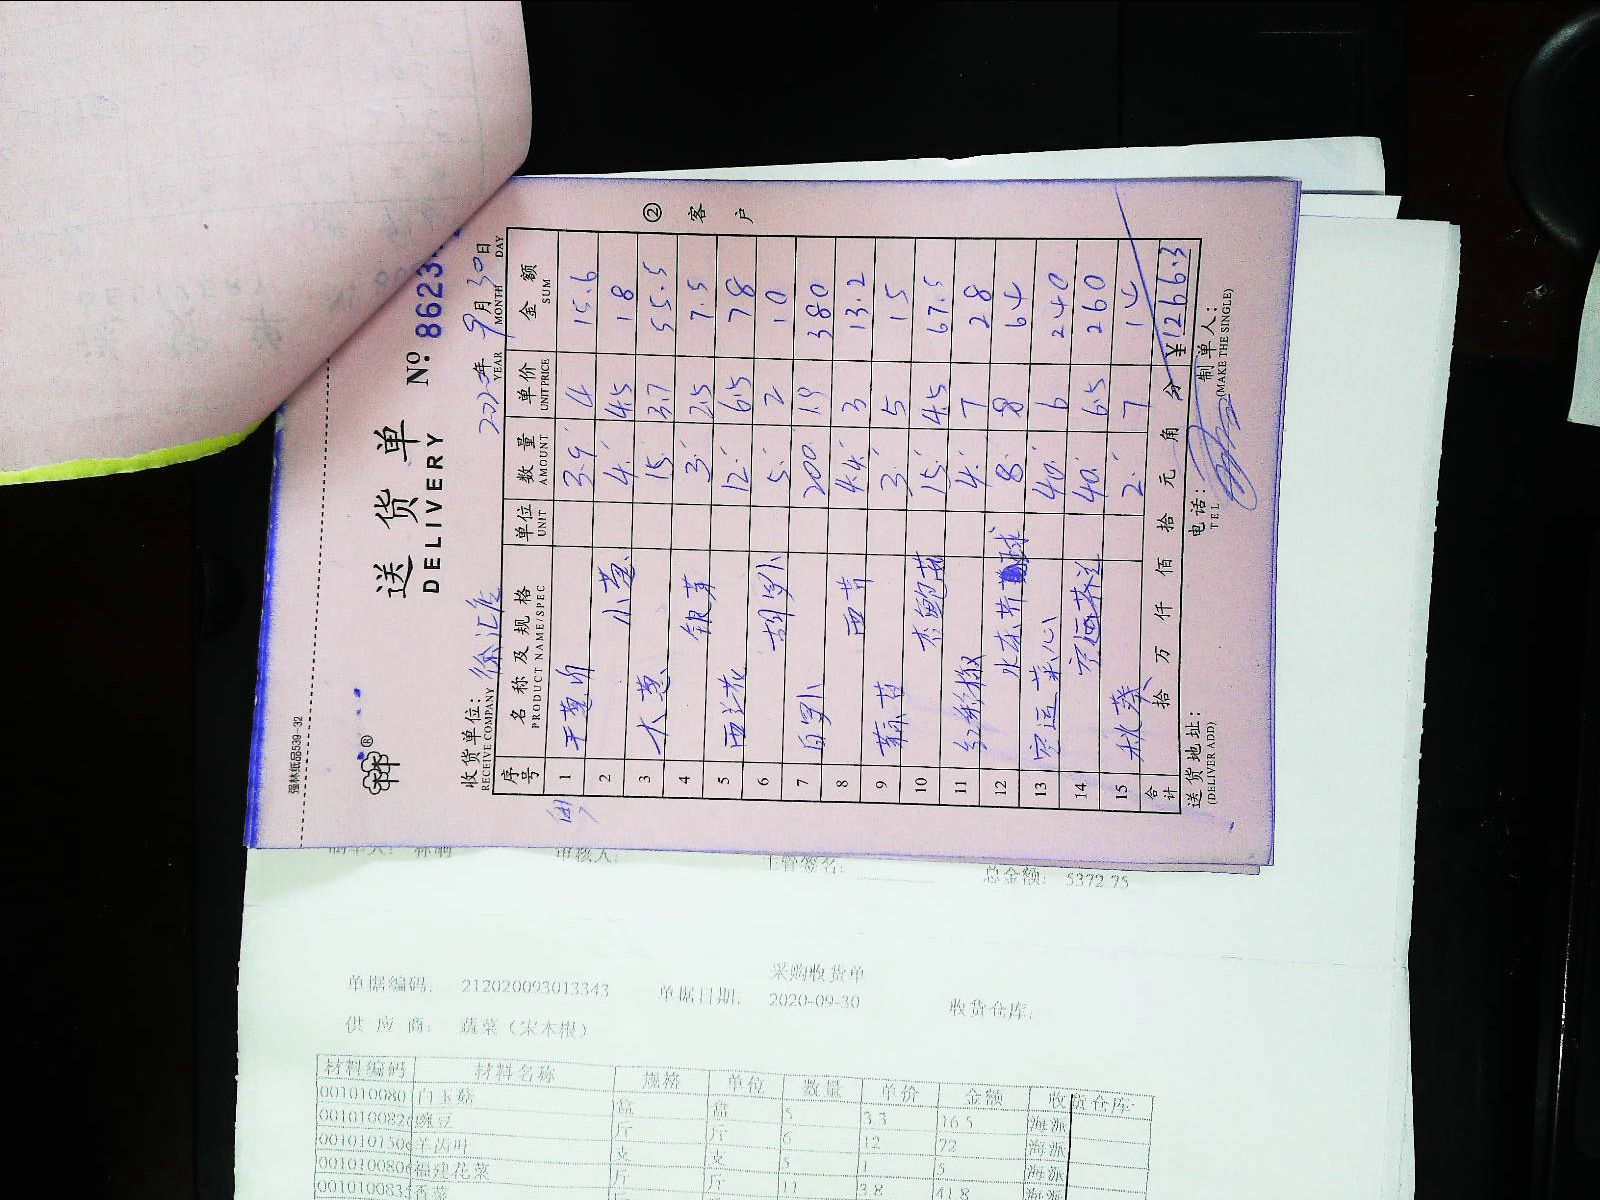 强林纸品539-32
送货单
DELIVERY
№ 8623
收货单位: 徐汇 2020年 9月 30日
RECEIVE COMPANY YEAR MONTH DAY
序号 名称及规格 单位 数量 单价 金额
PRODUCT NAME/SPEC UNIT AMOUNT UNIT PRICE SUM
1 干葱 3.9 4 15.6
2 小葱 4 4.5 18
3 大葱 15 3.7 55.5
4 银芽 3 2.5 7.5
5 西兰花 12 6.5 78
6 胡罗卜 5 2 10
7 白罗卜 200 1.9 380
8 西芹 4.4 3 13.2
9 3 5 15
10 杏鲍菇 15 4.5 67.5
11 红 椒 4 7 28
12 8 8 64
13 空运菜心 40 6 240
14 空运芥兰 40 6.5 260
15 秋葵 2 7 14
合计 拾 万 仟 佰 拾 元 角 分 ¥1266.3
送货地址: 电话: 制单人:
(DELIVER ADD) TEL (MAKE THE SINGLE)
② 客户
审核人: 主管签名: 总金额: 5372.75
采购收货单
单据编码: 212020093013343 单据日期: 2020-09-30 收货仓库:
供应商: 蔬菜（宋木根）
材料编码 材料名称 规格 单位 数量 单价 金额 收货仓库
001010080 白玉菇 盘 盘 5 3.3 16.5 海派
00101008 豌豆 斤 斤 6 12 72 海派
00101015 羊齿叶 支 支 5 1 5 海派
00101008 福建花菜 斤 斤 11 3.8 41.8 海派
00101008 香菜